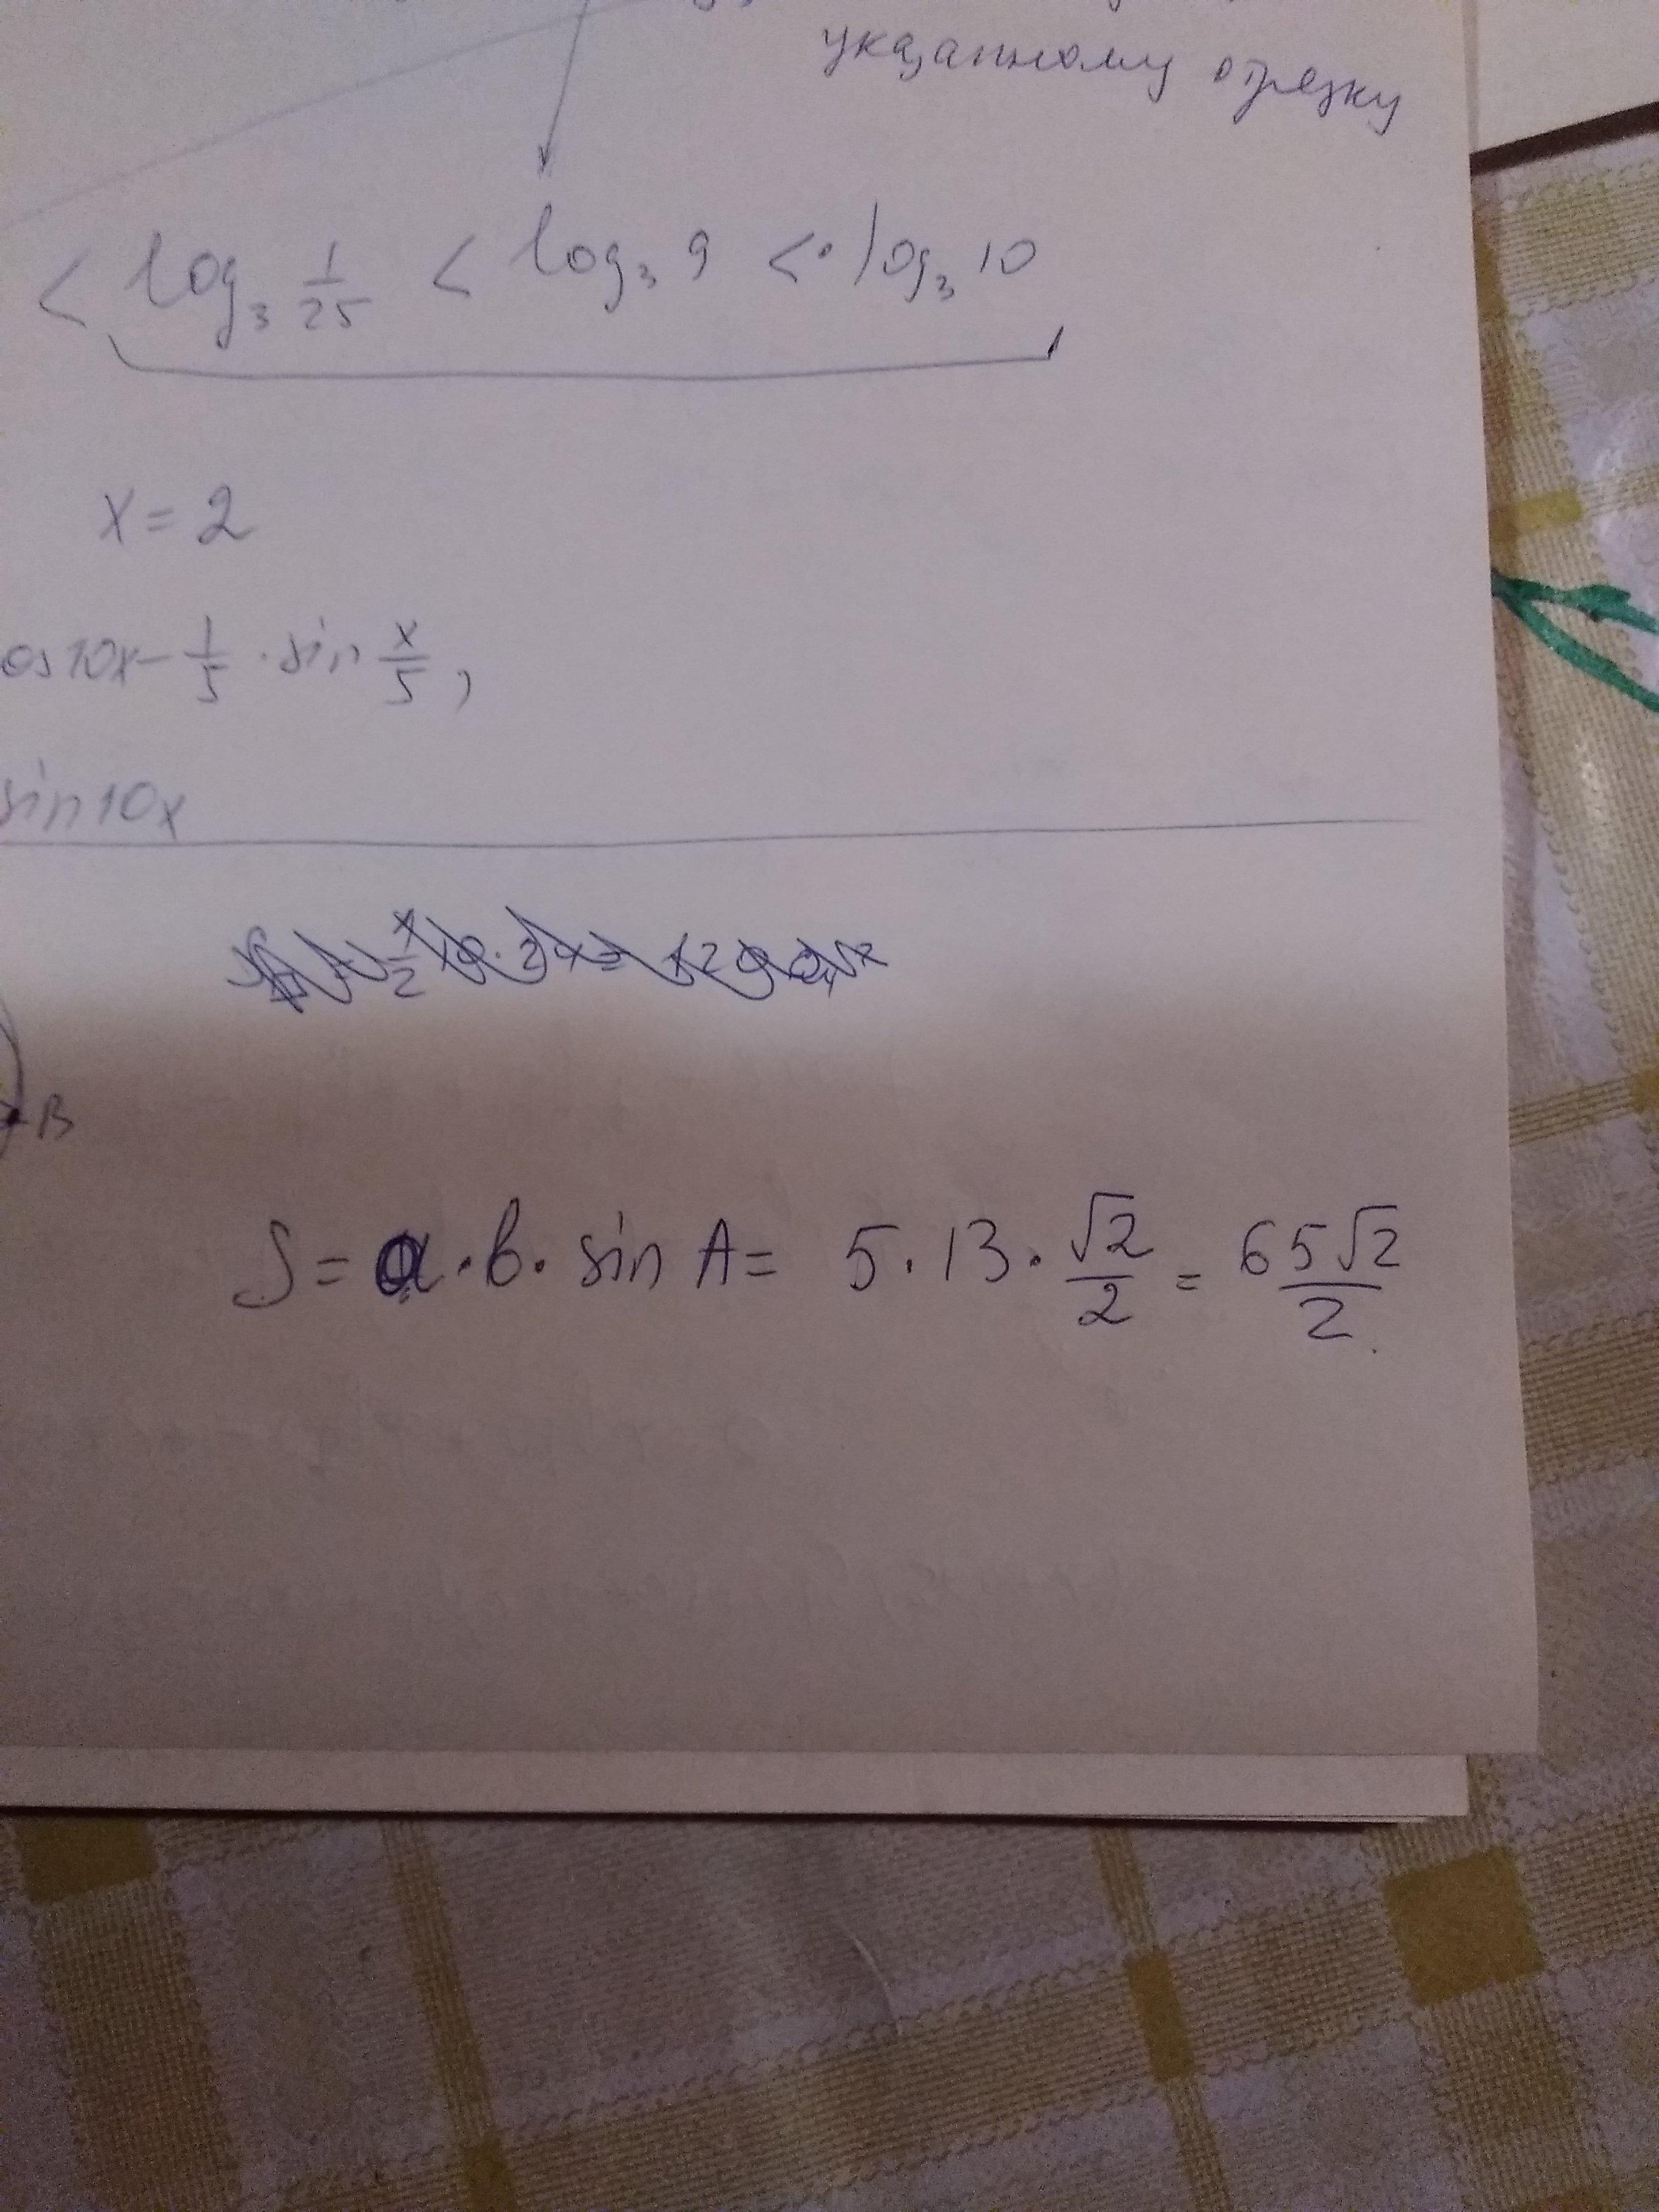 указанному отрезку
< log₃ 1/25 < log₃ 9 < · log₃ 10
x = 2
os10x - 1/5 · sin x/5,
sin10x
B
S = a · b · sin A = 5 · 13 · √2/2 = 65√2/2